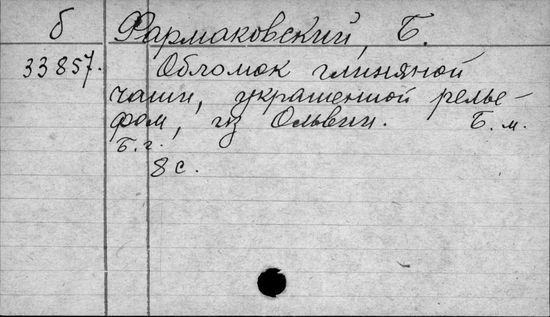 б Фармаковский, Б.
33857. Обломок глиняной
чаши, украшенной релье-
фом, из Ольвии. Б. м.
Б. г.
8 с.